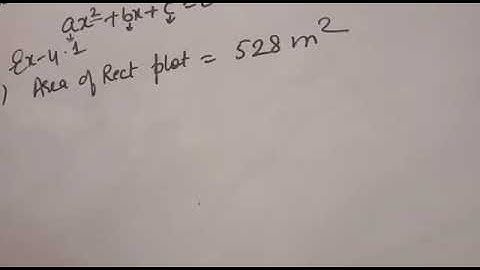 ax² + bx + c =
Ex-4.1
) Area of Rect plot = 528 m²